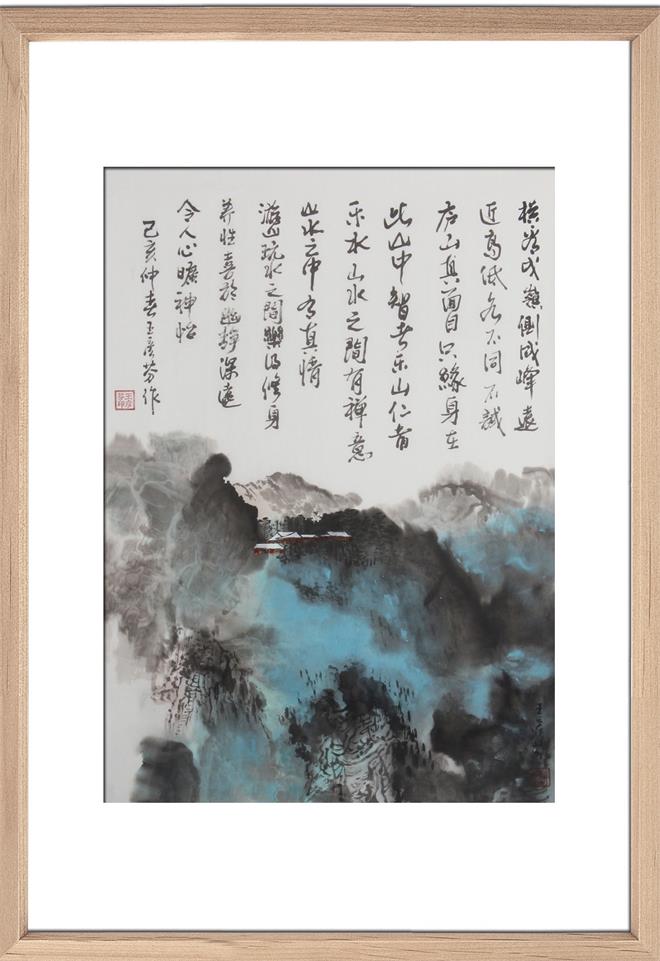 横看成嶺側成峰遠
近高低各不同不識
庐山真面目只緣身在
此山中智者乐山仁者
乐水山水之間有禅意
山水之中有真情
游山玩水之間樂得修身
养性喜於幽靜深遠
令人心曠神怡
己亥仲春王彦芬作